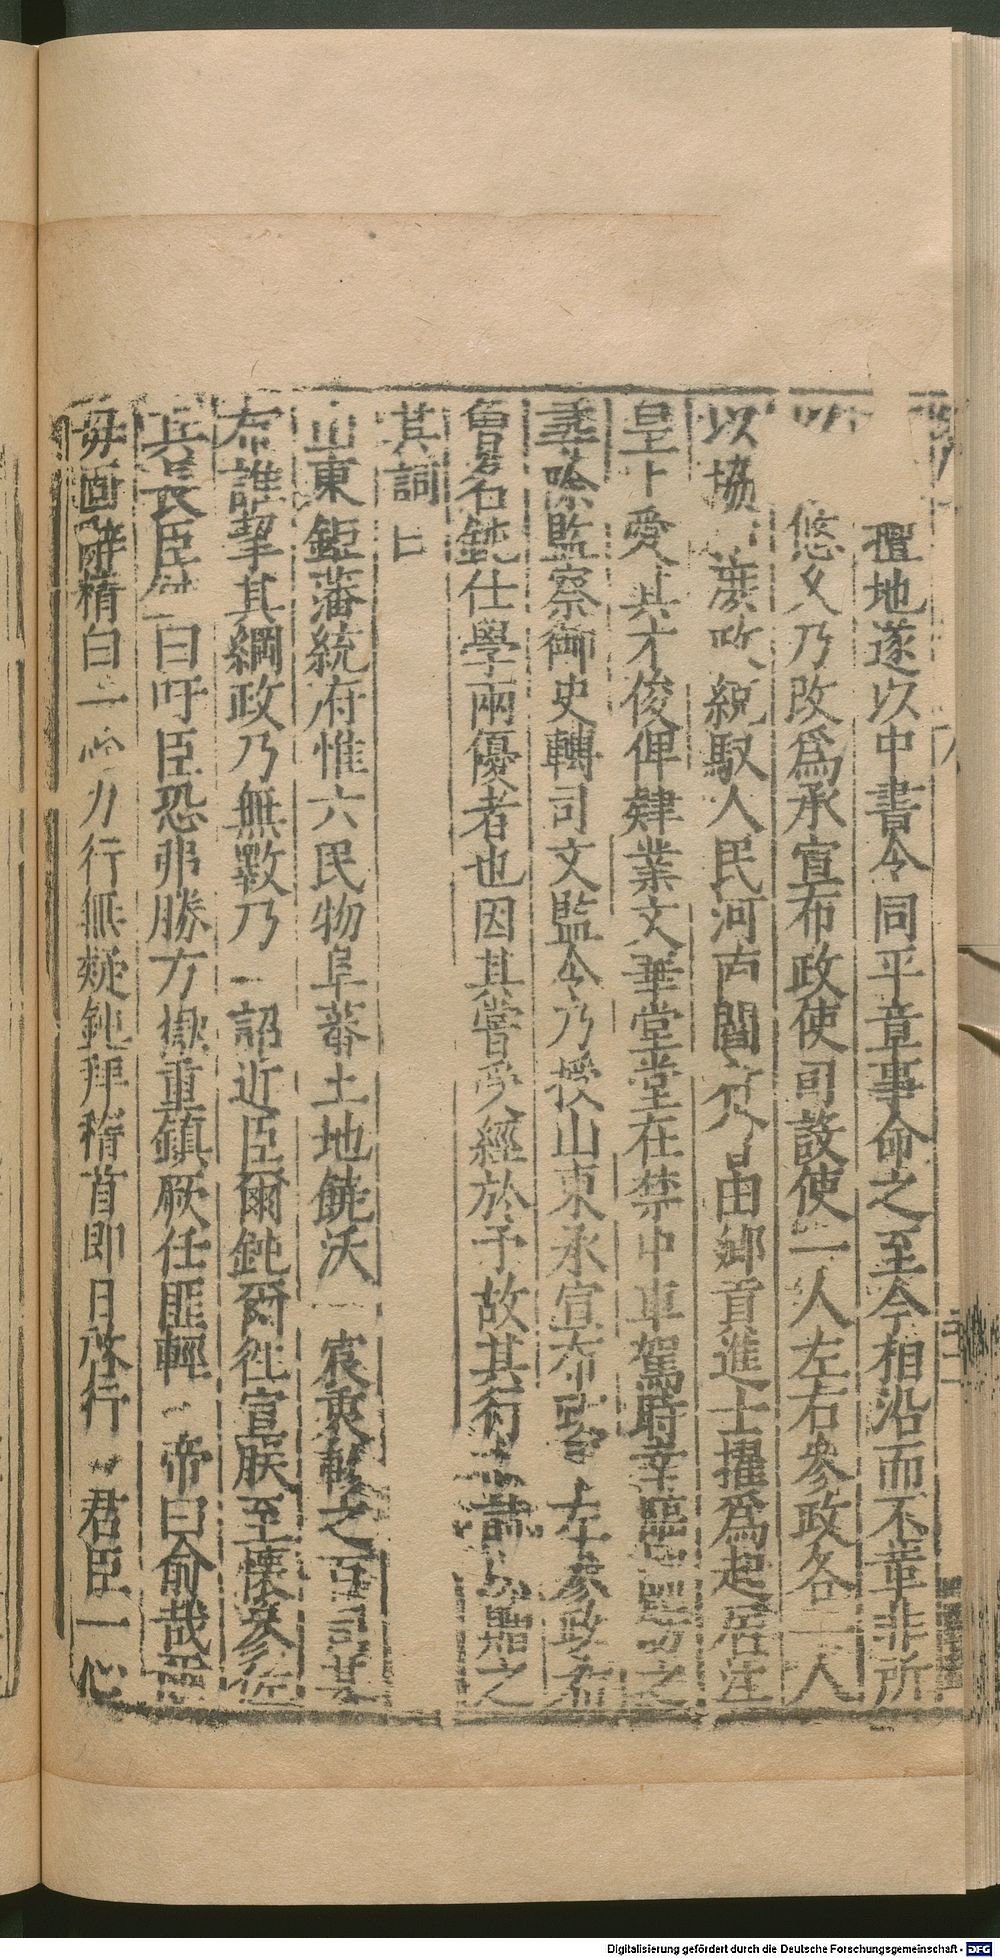 壇地遂以中書令同平章事命之至今相沿而不革非所
以 悠久乃改爲承宣布政使司設使一人左右參政各一人
以協 庶政 統馭人民河南閻 公鈍由鄉貢進士擢爲起居注
皇上愛其才俊俾肄業文華堂堂在禁中車駕時幸臨 之
尋除監察御史轉司文監令乃授山東承宣布政 左參政蓋
魯名鈍仕學兩優者也因其嘗受經於予故其行 詩 贈之
其詞曰
山東鉅藩統府惟六民物阜蕃土地饒沃 宸衷軫之百司其
布誰挈其綱政乃無斁乃 詔近臣爾鈍爾往宣朕至懷參佐
兵長臣鈍曰吁臣恐弗勝方嶽重鎮厥任匪輕 帝曰俞哉爾
毋固辭 臼一心力行無疑鈍拜稽首即日啓行 君臣一心
Digitalisierung gefördert durch die Deutsche Forschungsgemeinschaft - DFG